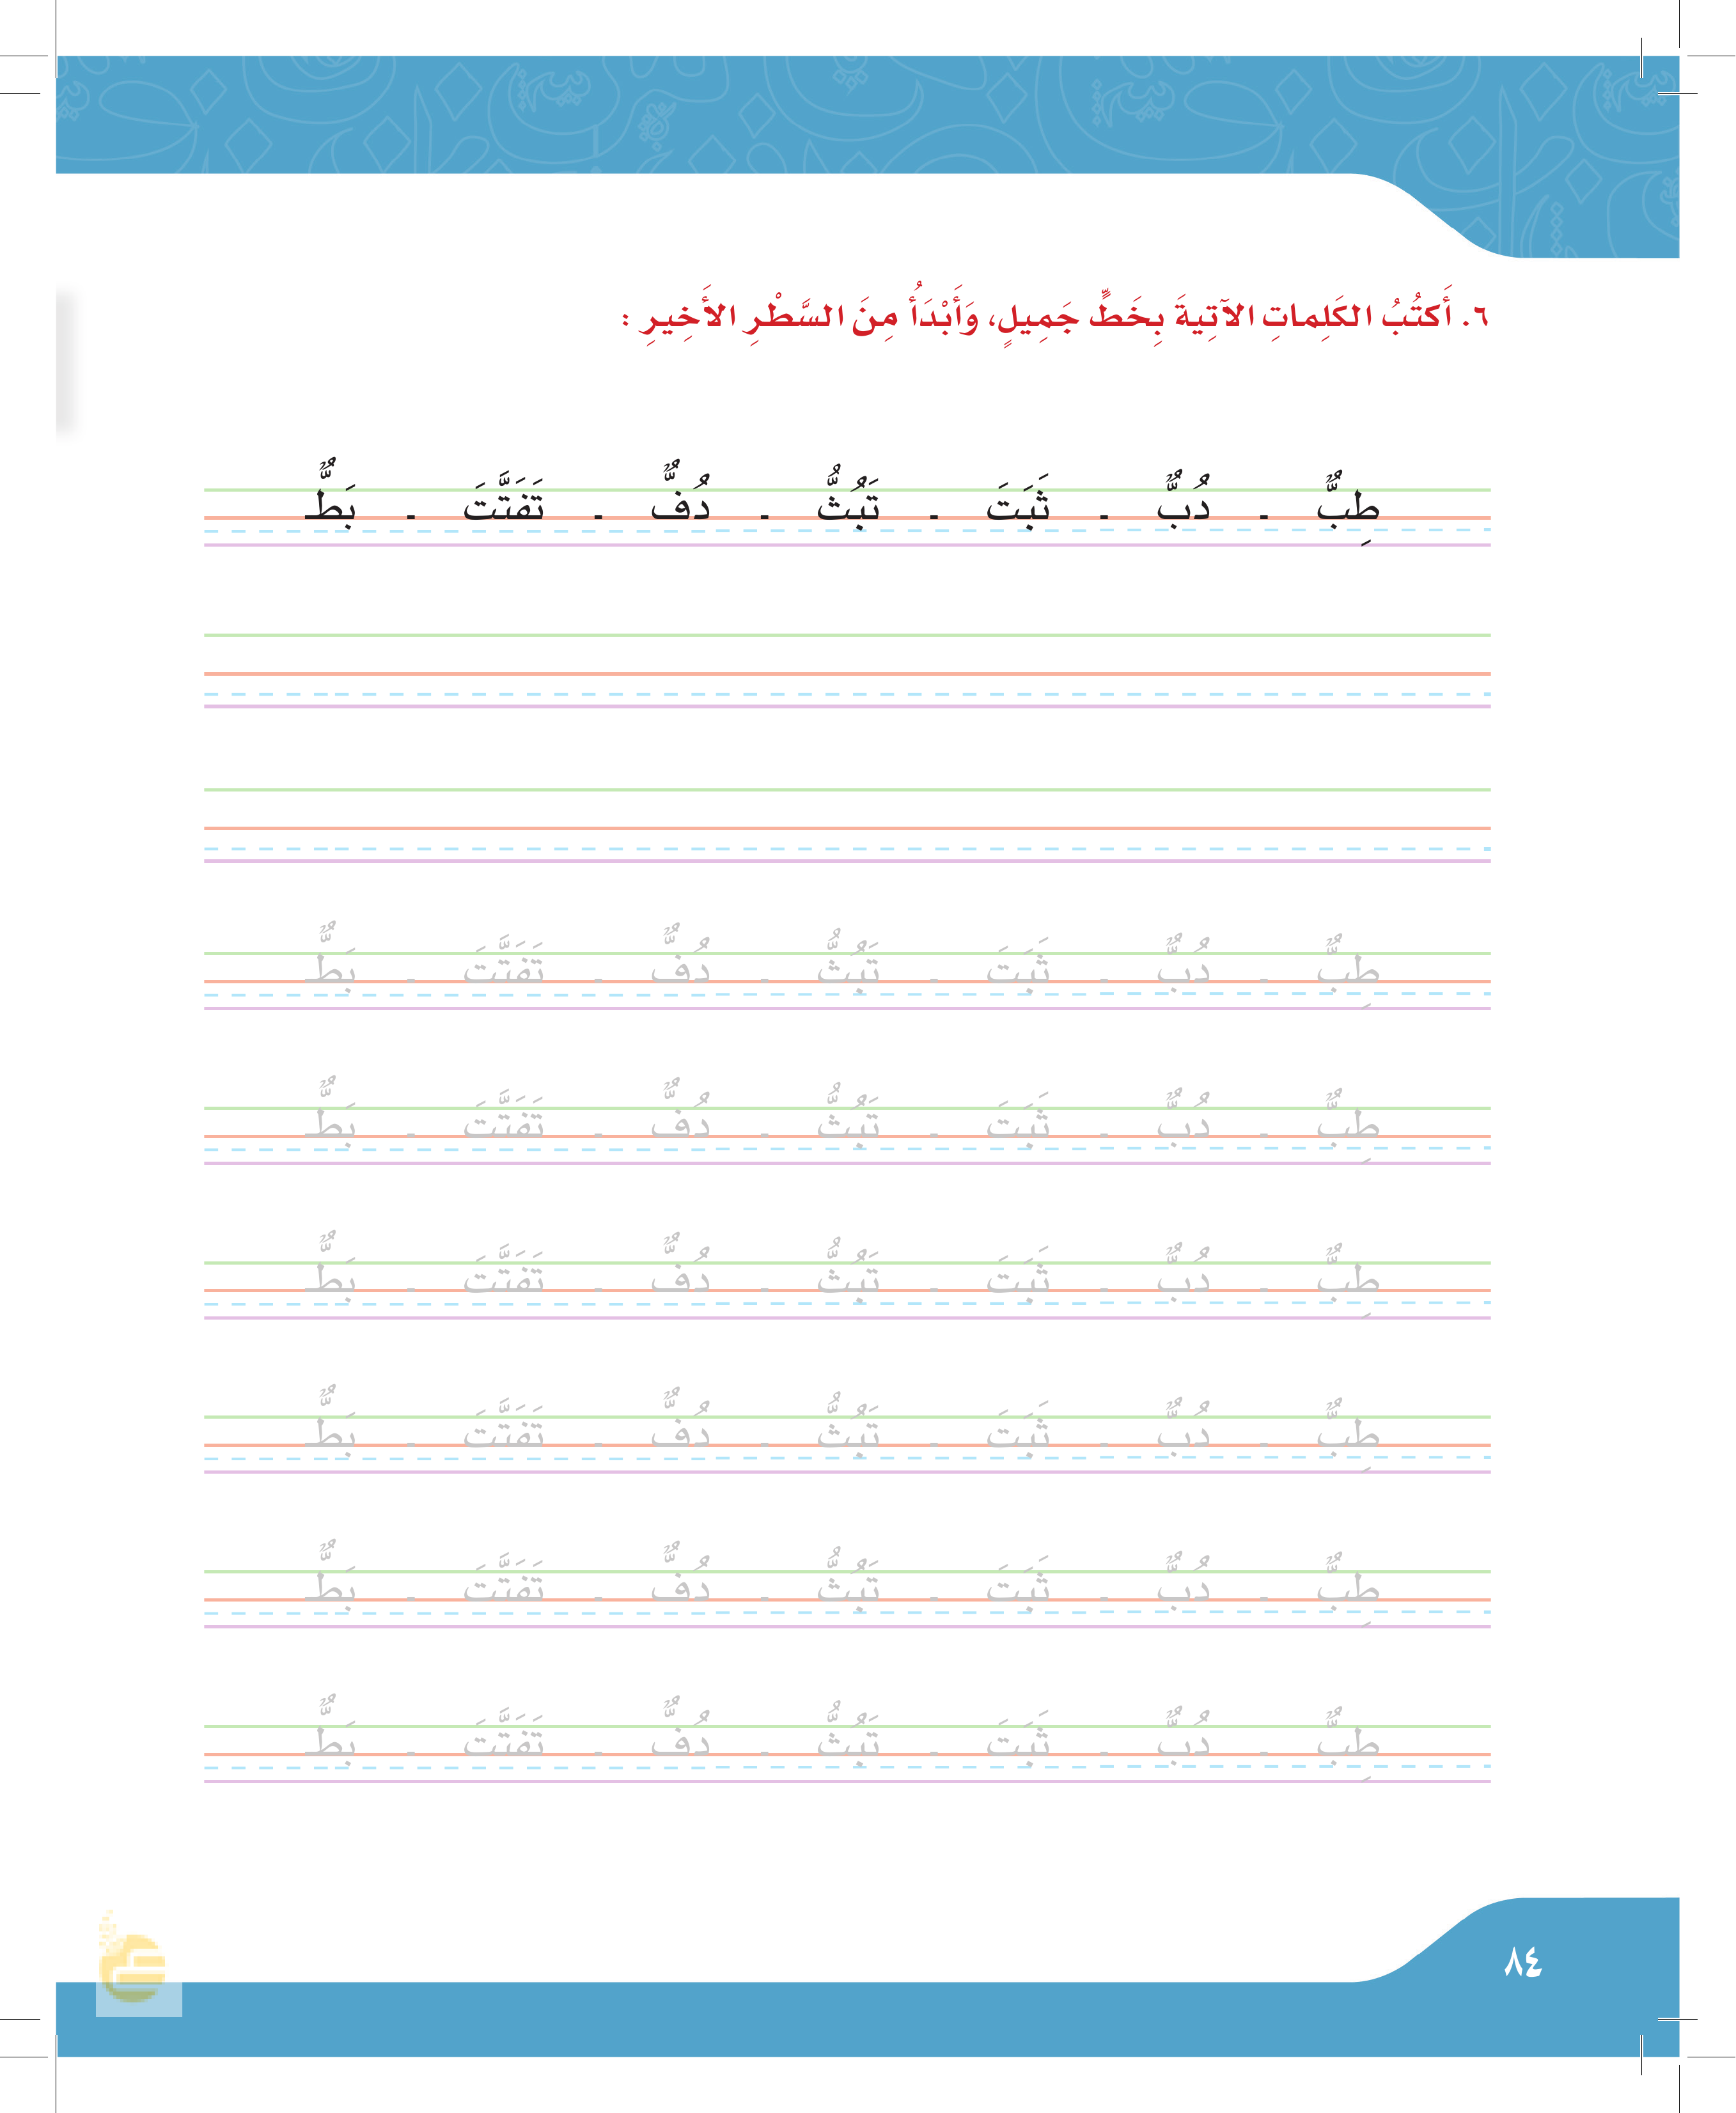 ٦. أَكتُبُ الكَلِماتِ الآتِيةَ بِخَطٍّ جَمِيلٍ، وَأَبْدَأُ مِنَ السَّطْرِ الأَخِيرِ :
طِبٌّ . دُبٌّ . ثَبَتَ . تَبُثُّ . دُفٌّ . تَفَتَّتَ . بَطٌّ
طِبٌّ . دُبٌّ . ثَبَتَ . تَبُثُّ . دُفٌّ . تَفَتَّتَ . بَطٌّ
طِبٌّ . دُبٌّ . ثَبَتَ . تَبُثُّ . دُفٌّ . تَفَتَّتَ . بَطٌّ
طِبٌّ . دُبٌّ . ثَبَتَ . تَبُثُّ . دُفٌّ . تَفَتَّتَ . بَطٌّ
طِبٌّ . دُبٌّ . ثَبَتَ . تَبُثُّ . دُفٌّ . تَفَتَّتَ . بَطٌّ
طِبٌّ . دُبٌّ . ثَبَتَ . تَبُثُّ . دُفٌّ . تَفَتَّتَ . بَطٌّ
طِبٌّ . دُبٌّ . ثَبَتَ . تَبُثُّ . دُفٌّ . تَفَتَّتَ . بَطٌّ
٨٤